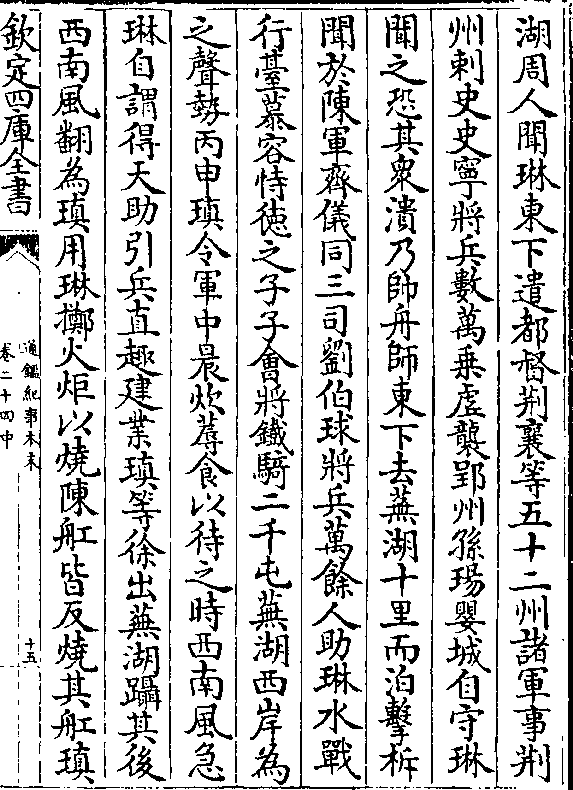 湖周人聞琳東下遣都督荆襄等五十二州諸軍事荆
州刺史史寧將兵數萬乗虛襲郢州孫瑒嬰城自守琳
聞之恐其衆潰乃帥舟師東下去蕪湖十里而泊擊柝
聞於陳軍齊儀同三司劉伯球將兵萬餘人助琳水戰
行臺慕容恃德之子子會將鐵騎二千屯蕪湖西岸為
之聲勢丙申瑱令軍中晨炊蓐食以待之時西南風急
琳自謂得天助引兵直趣建業瑱等徐出蕪湖躡其後
西南風翻為瑱用琳擲火炬以燒陳舡皆反燒其舡瑱
欽定四庫全書
通鑑紀事本末
卷二十四中
十五